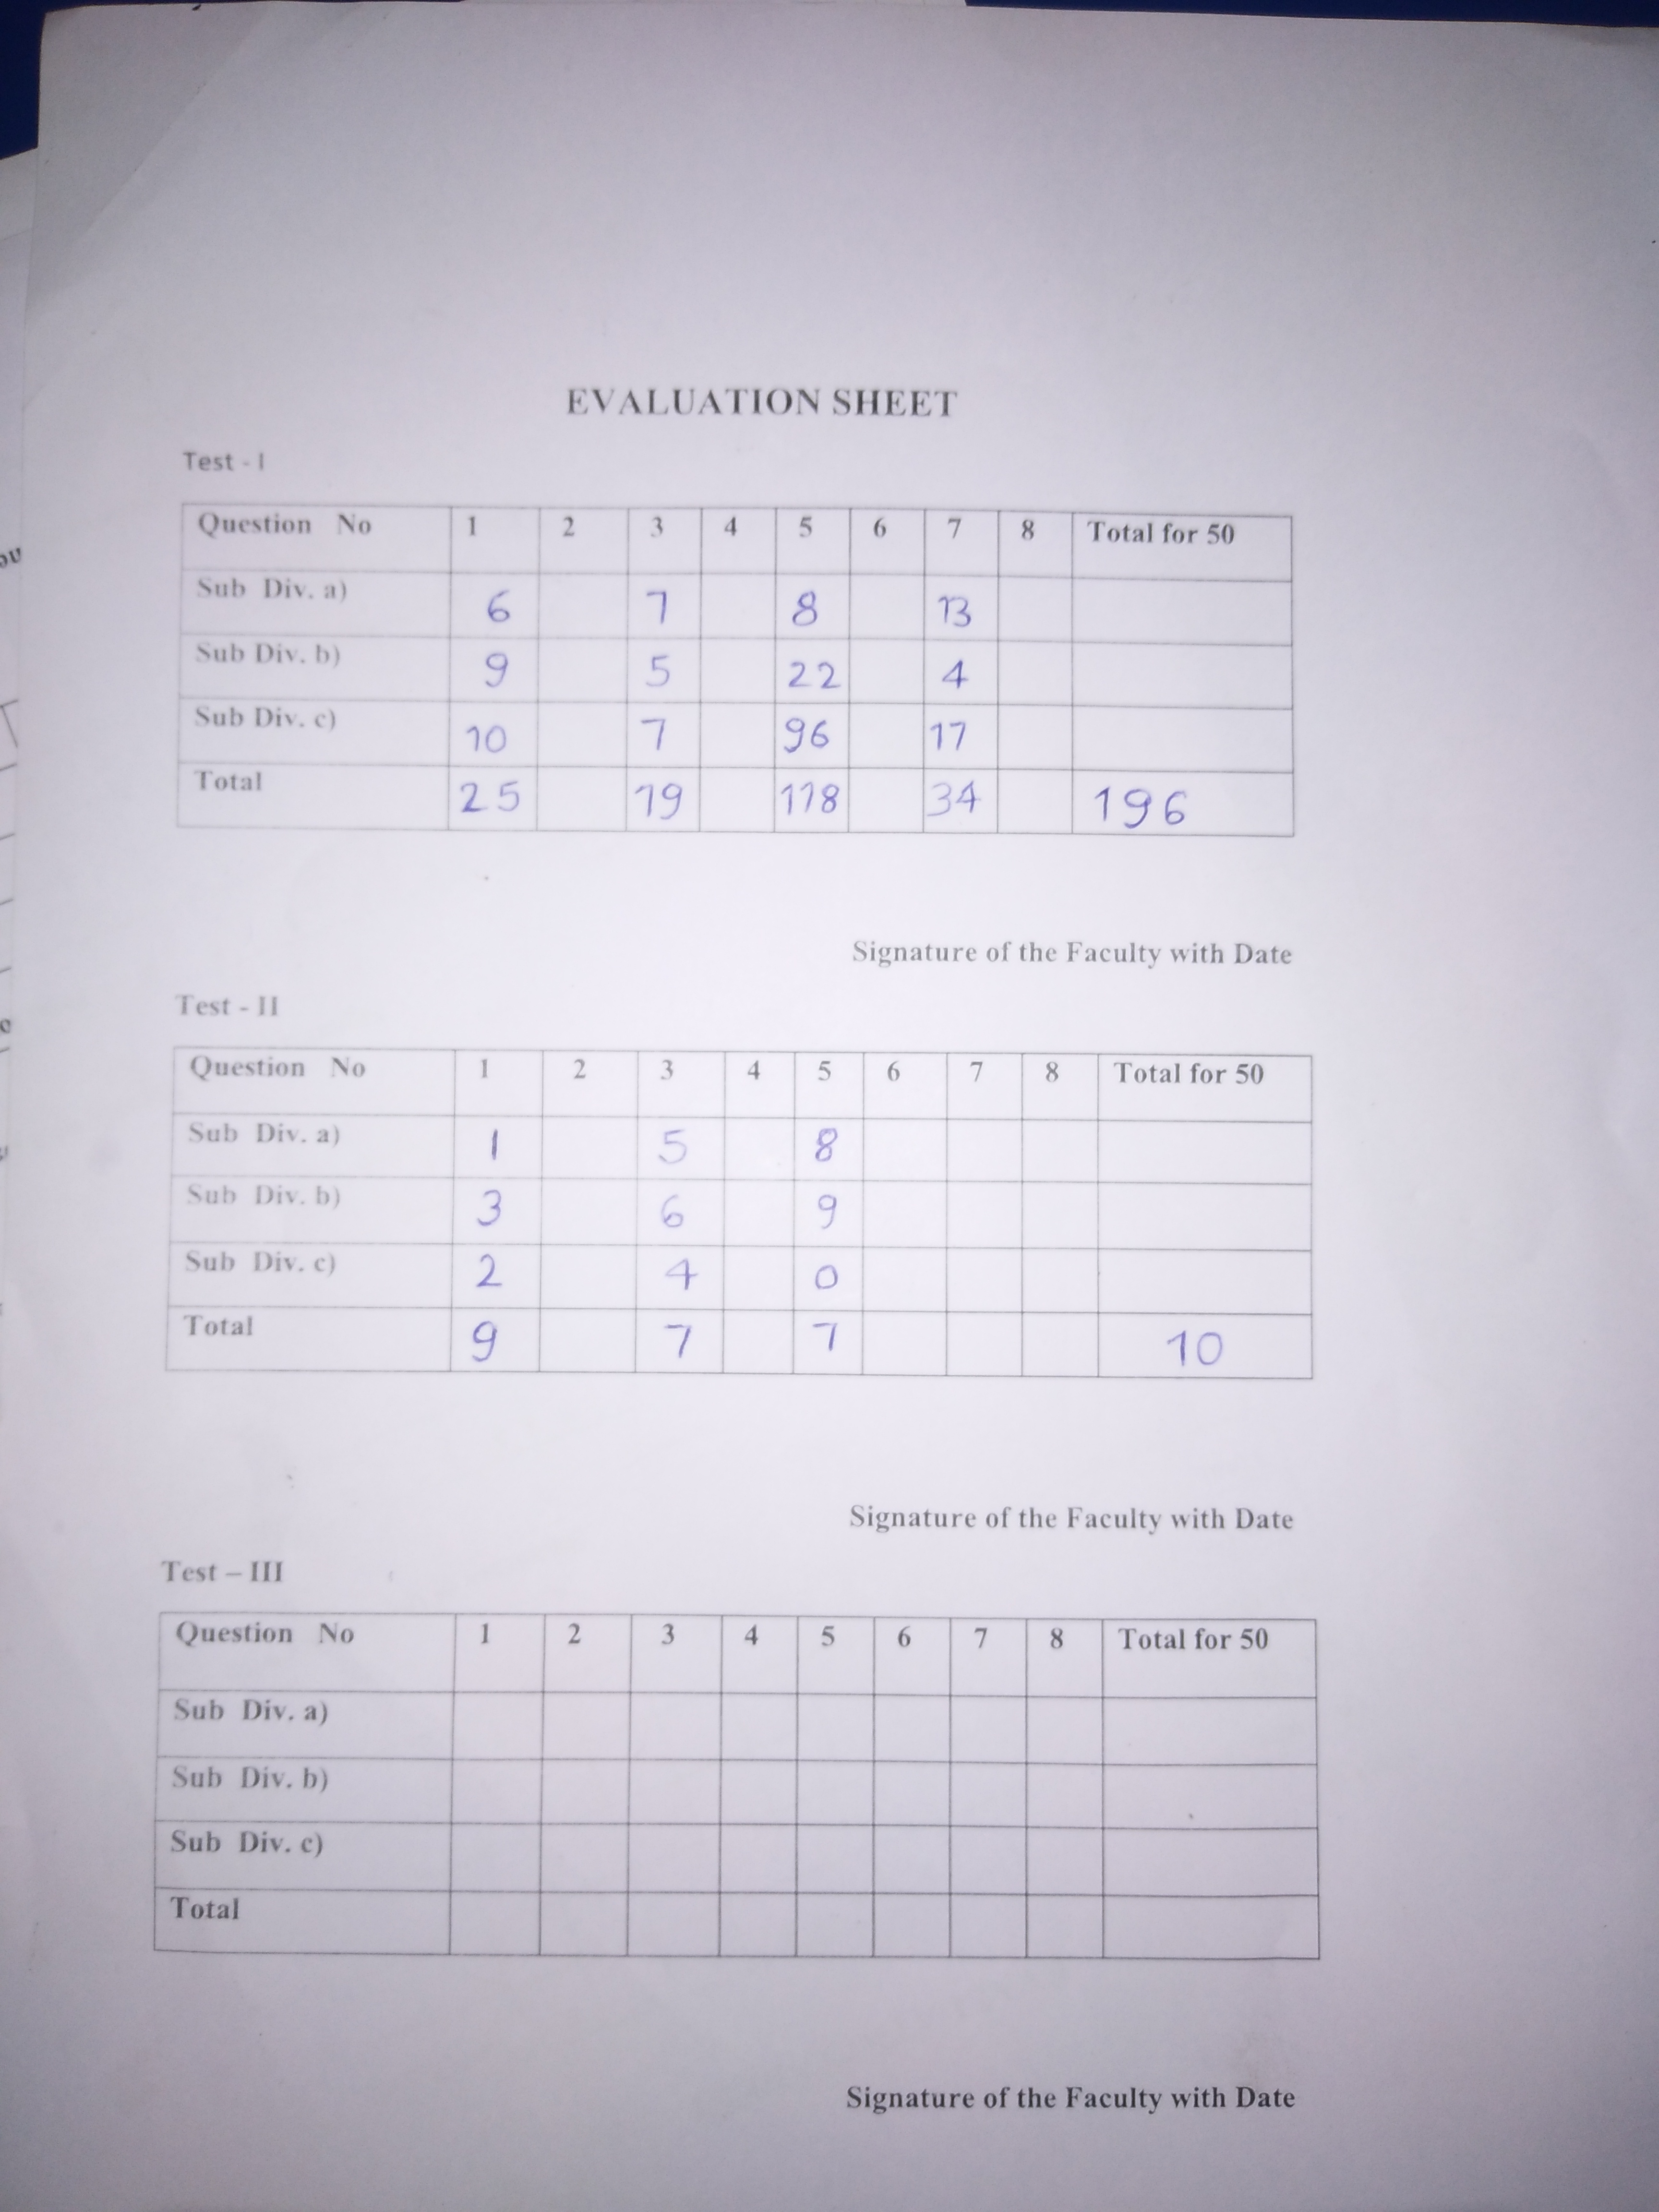 EVALUATION SHEET
Test - I
Question No 1 2 3 4 5 6 7 8 Total for 50
Sub Div. a) 6 7 8 13
Sub Div. b) 9 5 22 4
Sub Div. c) 10 7 96 17
Total 25 19 118 34 196
Signature of the Faculty with Date
Test - II
Question No 1 2 3 4 5 6 7 8 Total for 50
Sub Div. a) 1 5 8
Sub Div. b) 3 6 9
Sub Div. c) 2 4 0
Total 9 7 7 10
Signature of the Faculty with Date
Test – III
Question No 1 2 3 4 5 6 7 8 Total for 50
Sub Div. a)
Sub Div. b)
Sub Div. c)
Total
Signature of the Faculty with Date